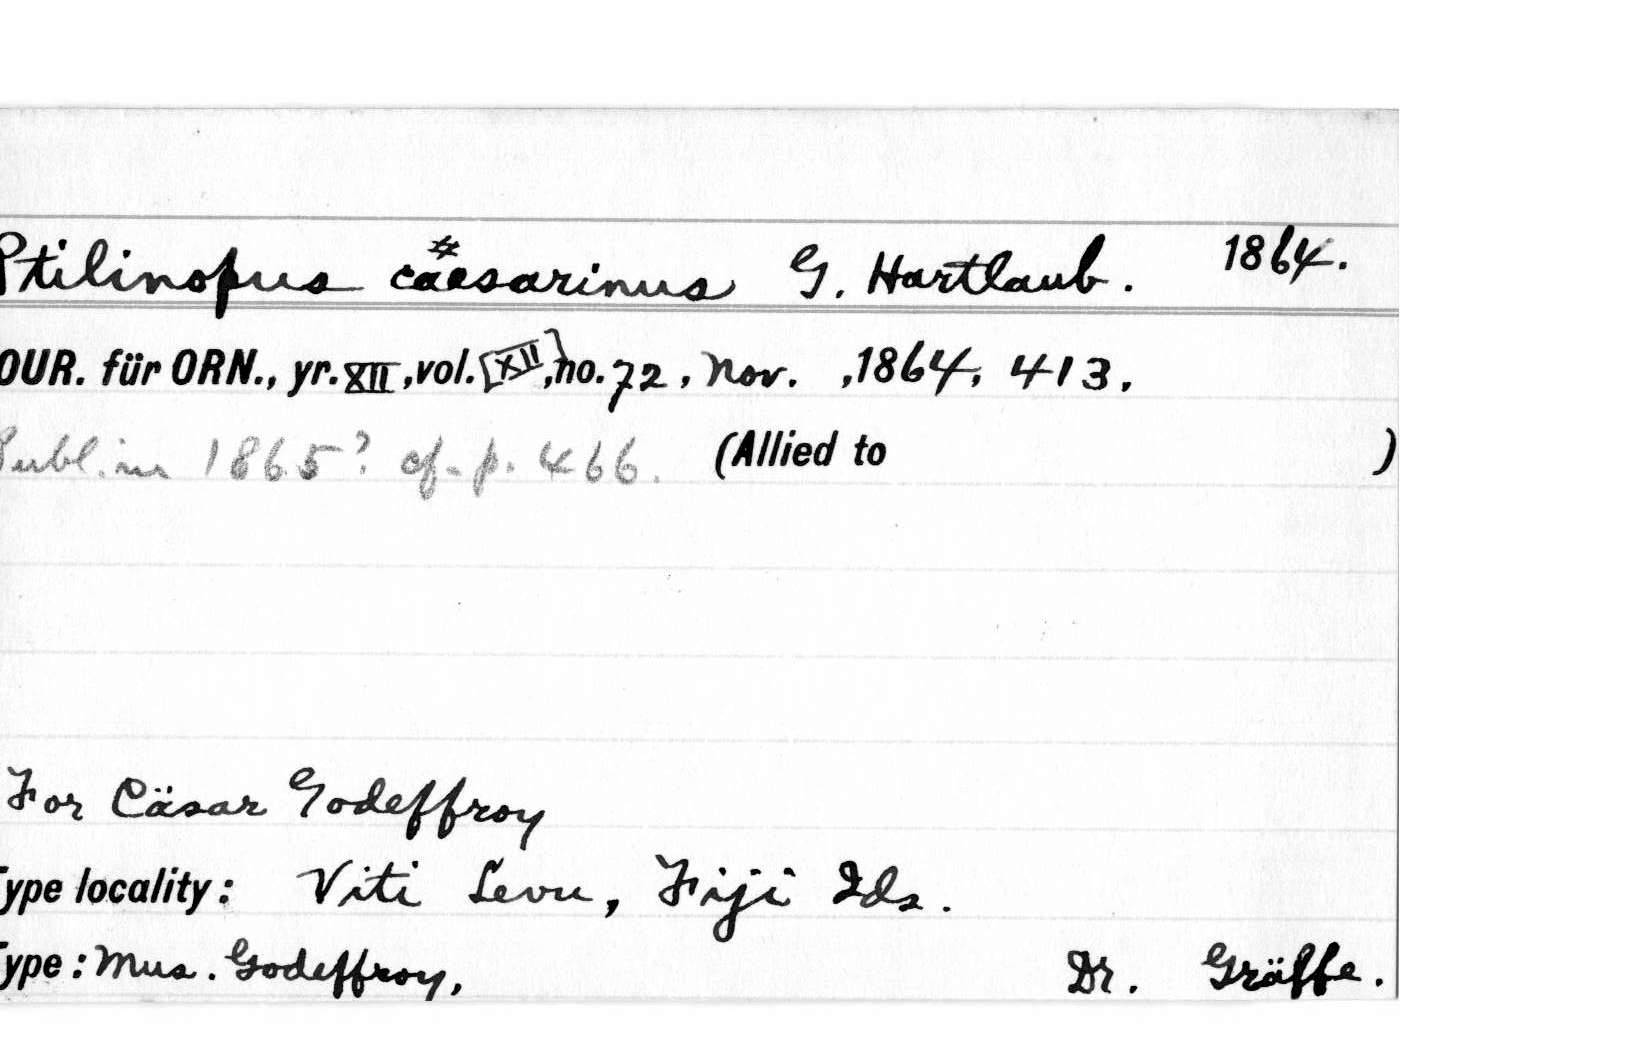 Ptilinopus caesarinus G. Hartlaub. 1864.
OUR. für ORN., yr. XII, vol. [XII], no. 72, Nov. ,1864, 413.
Publ. in 1865? cf. p. 466. (Allied to )
For Cäsar Godeffroy
Type locality: Viti Levu, Fiji Ids.
Type: Mus. Godeffroy, Dr. Gräffe.